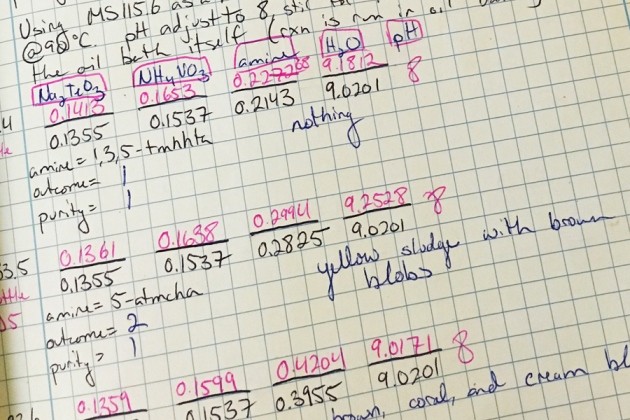 Using MS115.6 as
@90°C pH adjust to 8 stir (rxn is run in oil
the oil bath itself
Na2TeO3 NH4VO3 amine H2O pH
0.1413 0.1653 9.1812 8
0.1355 0.1537 0.2143 9.0201
nothing
amine = 1,3,5-tmhhta
outcome = 1
purity = 1
0.1361 0.1638 0.2994 9.2528 8
3.5 0.1355 0.1537 0.2825 9.0201
yellow sludge with brown
blobs
amine = 5-atmcha
outcome = 2
purity = 1
0.1359 0.1599 0.4204 9.0171 8
0.1537 0.3955 9.0201
brown, coral, and cream bl